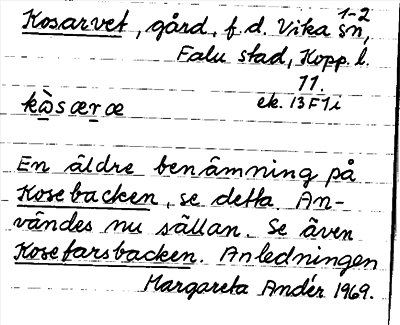 1-2
Kosarvet, gård, f.d. Vika sn,
Falu stad, Kopp. l.
11.
ek. 13F1i
kàsæræ
En äldre benämning på
Kosebacken, se detta. An-
vändes nu sällan. Se även
Kosetarsbacken. Anledningen
Margareta Andér 1969.